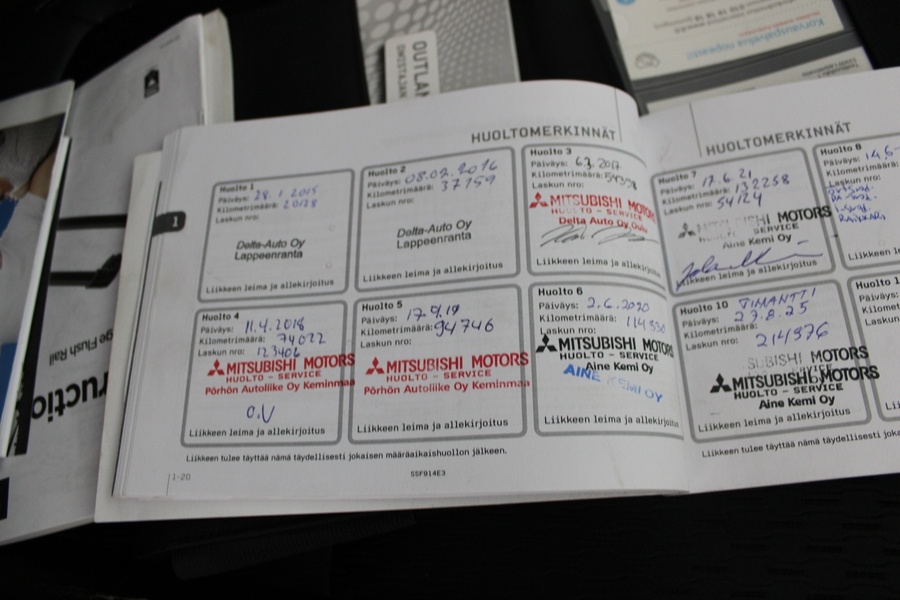 OUTLAN
OMISTAJAN
Korvauspalvelua nopeasti!
HUOLTOMERKINNÄT
Huolto 1
Päiväys: 28.1.2015
Kilometrimäärä: 20128
Laskun nro:
Delta-Auto Oy
Lappeenranta
Liikkeen leima ja allekirjoitus
Huolto 2
Päiväys: 08.02.2016
Kilometrimäärä: 37159
Laskun nro:
Delta-Auto Oy
Lappeenranta
Liikkeen leima ja allekirjoitus
Huolto 3
Päiväys: 6.3.2017
Kilometrimäärä:
Laskun nro:
MITSUBISHI MOTORS
HUOLTO - SERVICE
Delta Auto Oy, Oulu
Liikkeen leima ja allekirjoitus
1
Huolto 4
Päiväys: 11.4.2018
Kilometrimäärä: 74022
Laskun nro: 123406
MITSUBISHI MOTORS
HUOLTO - SERVICE
Pörhön Autoliike Oy Keminmaa
O.V
Liikkeen leima ja allekirjoitus
Huolto 5
Päiväys: 17.9.19
Kilometrimäärä: 94746
Laskun nro:
MITSUBISHI MOTORS
HUOLTO - SERVICE
Pörhön Autoliike Oy Keminmaa
Liikkeen leima ja allekirjoitus
Huolto 6
Päiväys: 2.6.2020
Kilometrimäärä:
Laskun nro:
MITSUBISHI MOTORS
HUOLTO - SERVICE
Aine Kemi Oy
AINE KEMI OY
Liikkeen leima ja allekirjoitus
Liikkeen tulee täyttää nämä täydellisesti jokaisen määräaikaishuollon jälkeen.
1-20
SSF914E3
HUOLTOMERKINNÄT
Huolto 7
Päiväys: 17.6.21
Kilometrimäärä: 132258
Laskun nro: 54124
MITSUBISHI MOTORS
HUOLTO - SERVICE
Aine Kemi Oy
Liikkeen leima ja allekirjoitus
Huolto 8
Päiväys: 14.5
Kilometrimäärä
Laskun nro:
Liikkeen
Huolto 10 TIMANTTI
Päiväys: 27.8.25
Kilometrimäärä:
Laskun nro: 214976
SUBISHI MOTORS
MITSUBISHI MOTORS
HUOLTO - SERVICE
Aine Kemi Oy
Liikkeen leima ja allekirjoitus
Huolto 1
Päiväys:
Kilometri
Laskun
Liikkeen tulee täyttää nämä täydellisesti joka
ge Flush Rail
ructio